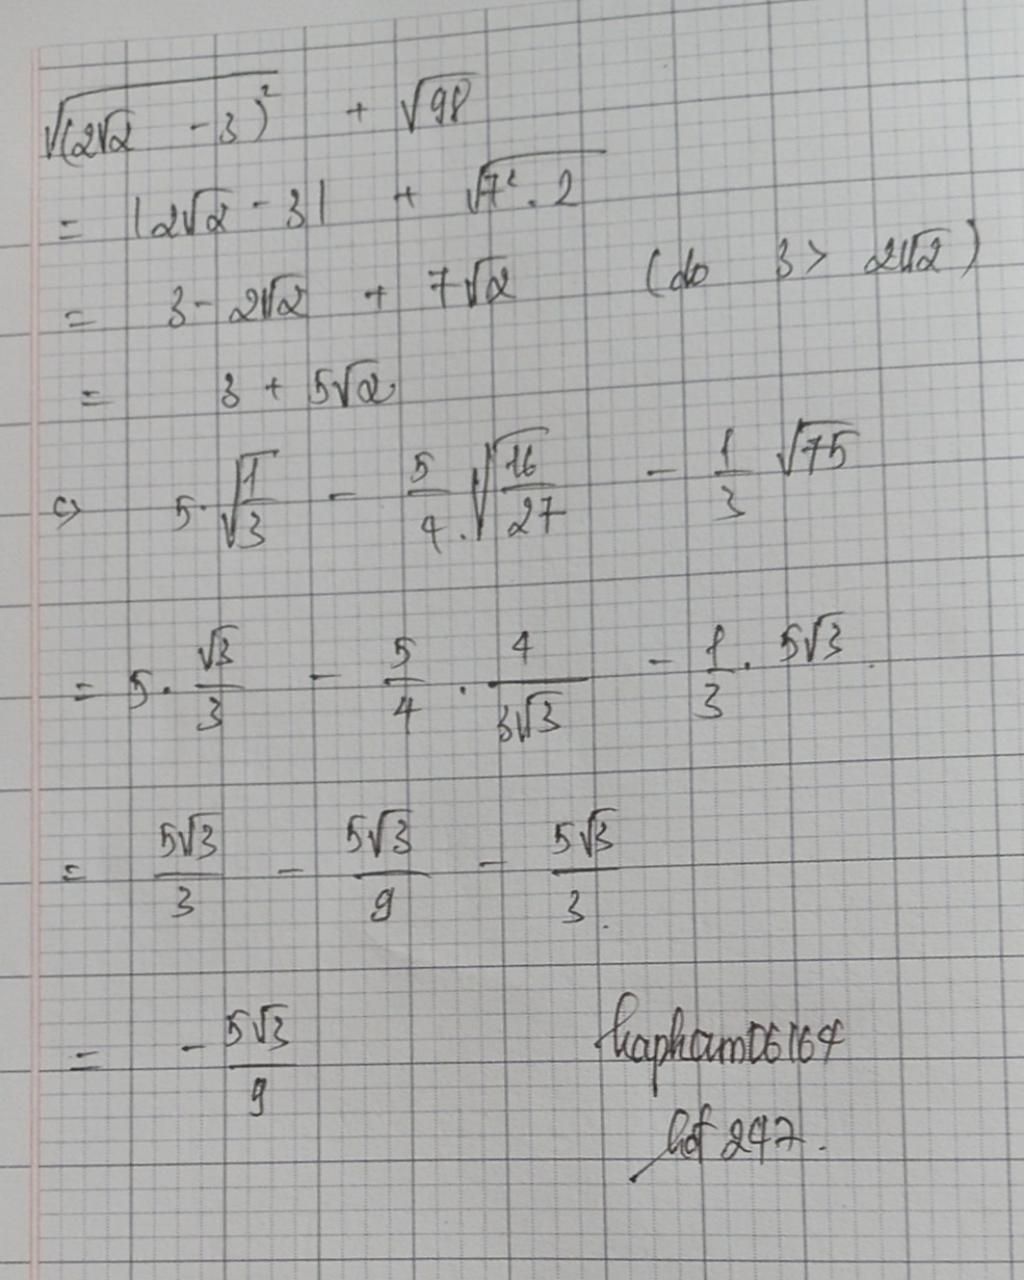 √(2√2 - 3)² + √98
= |2√2 - 3| + √7² . 2
= 3 - 2√2 + 7√2 (do 3 > 2√2)
= 3 + 5√2
c) 5 . √1/3 - 5/4 . √16/27 - 1/3 √75
= 5 . √3/3 - 5/4 . 4/3√3 - 1/3 . 5√3
= 5√3/3 - 5√3/9 - 5√3/3
= - 5√3/9
hapham06164
hdt 247.